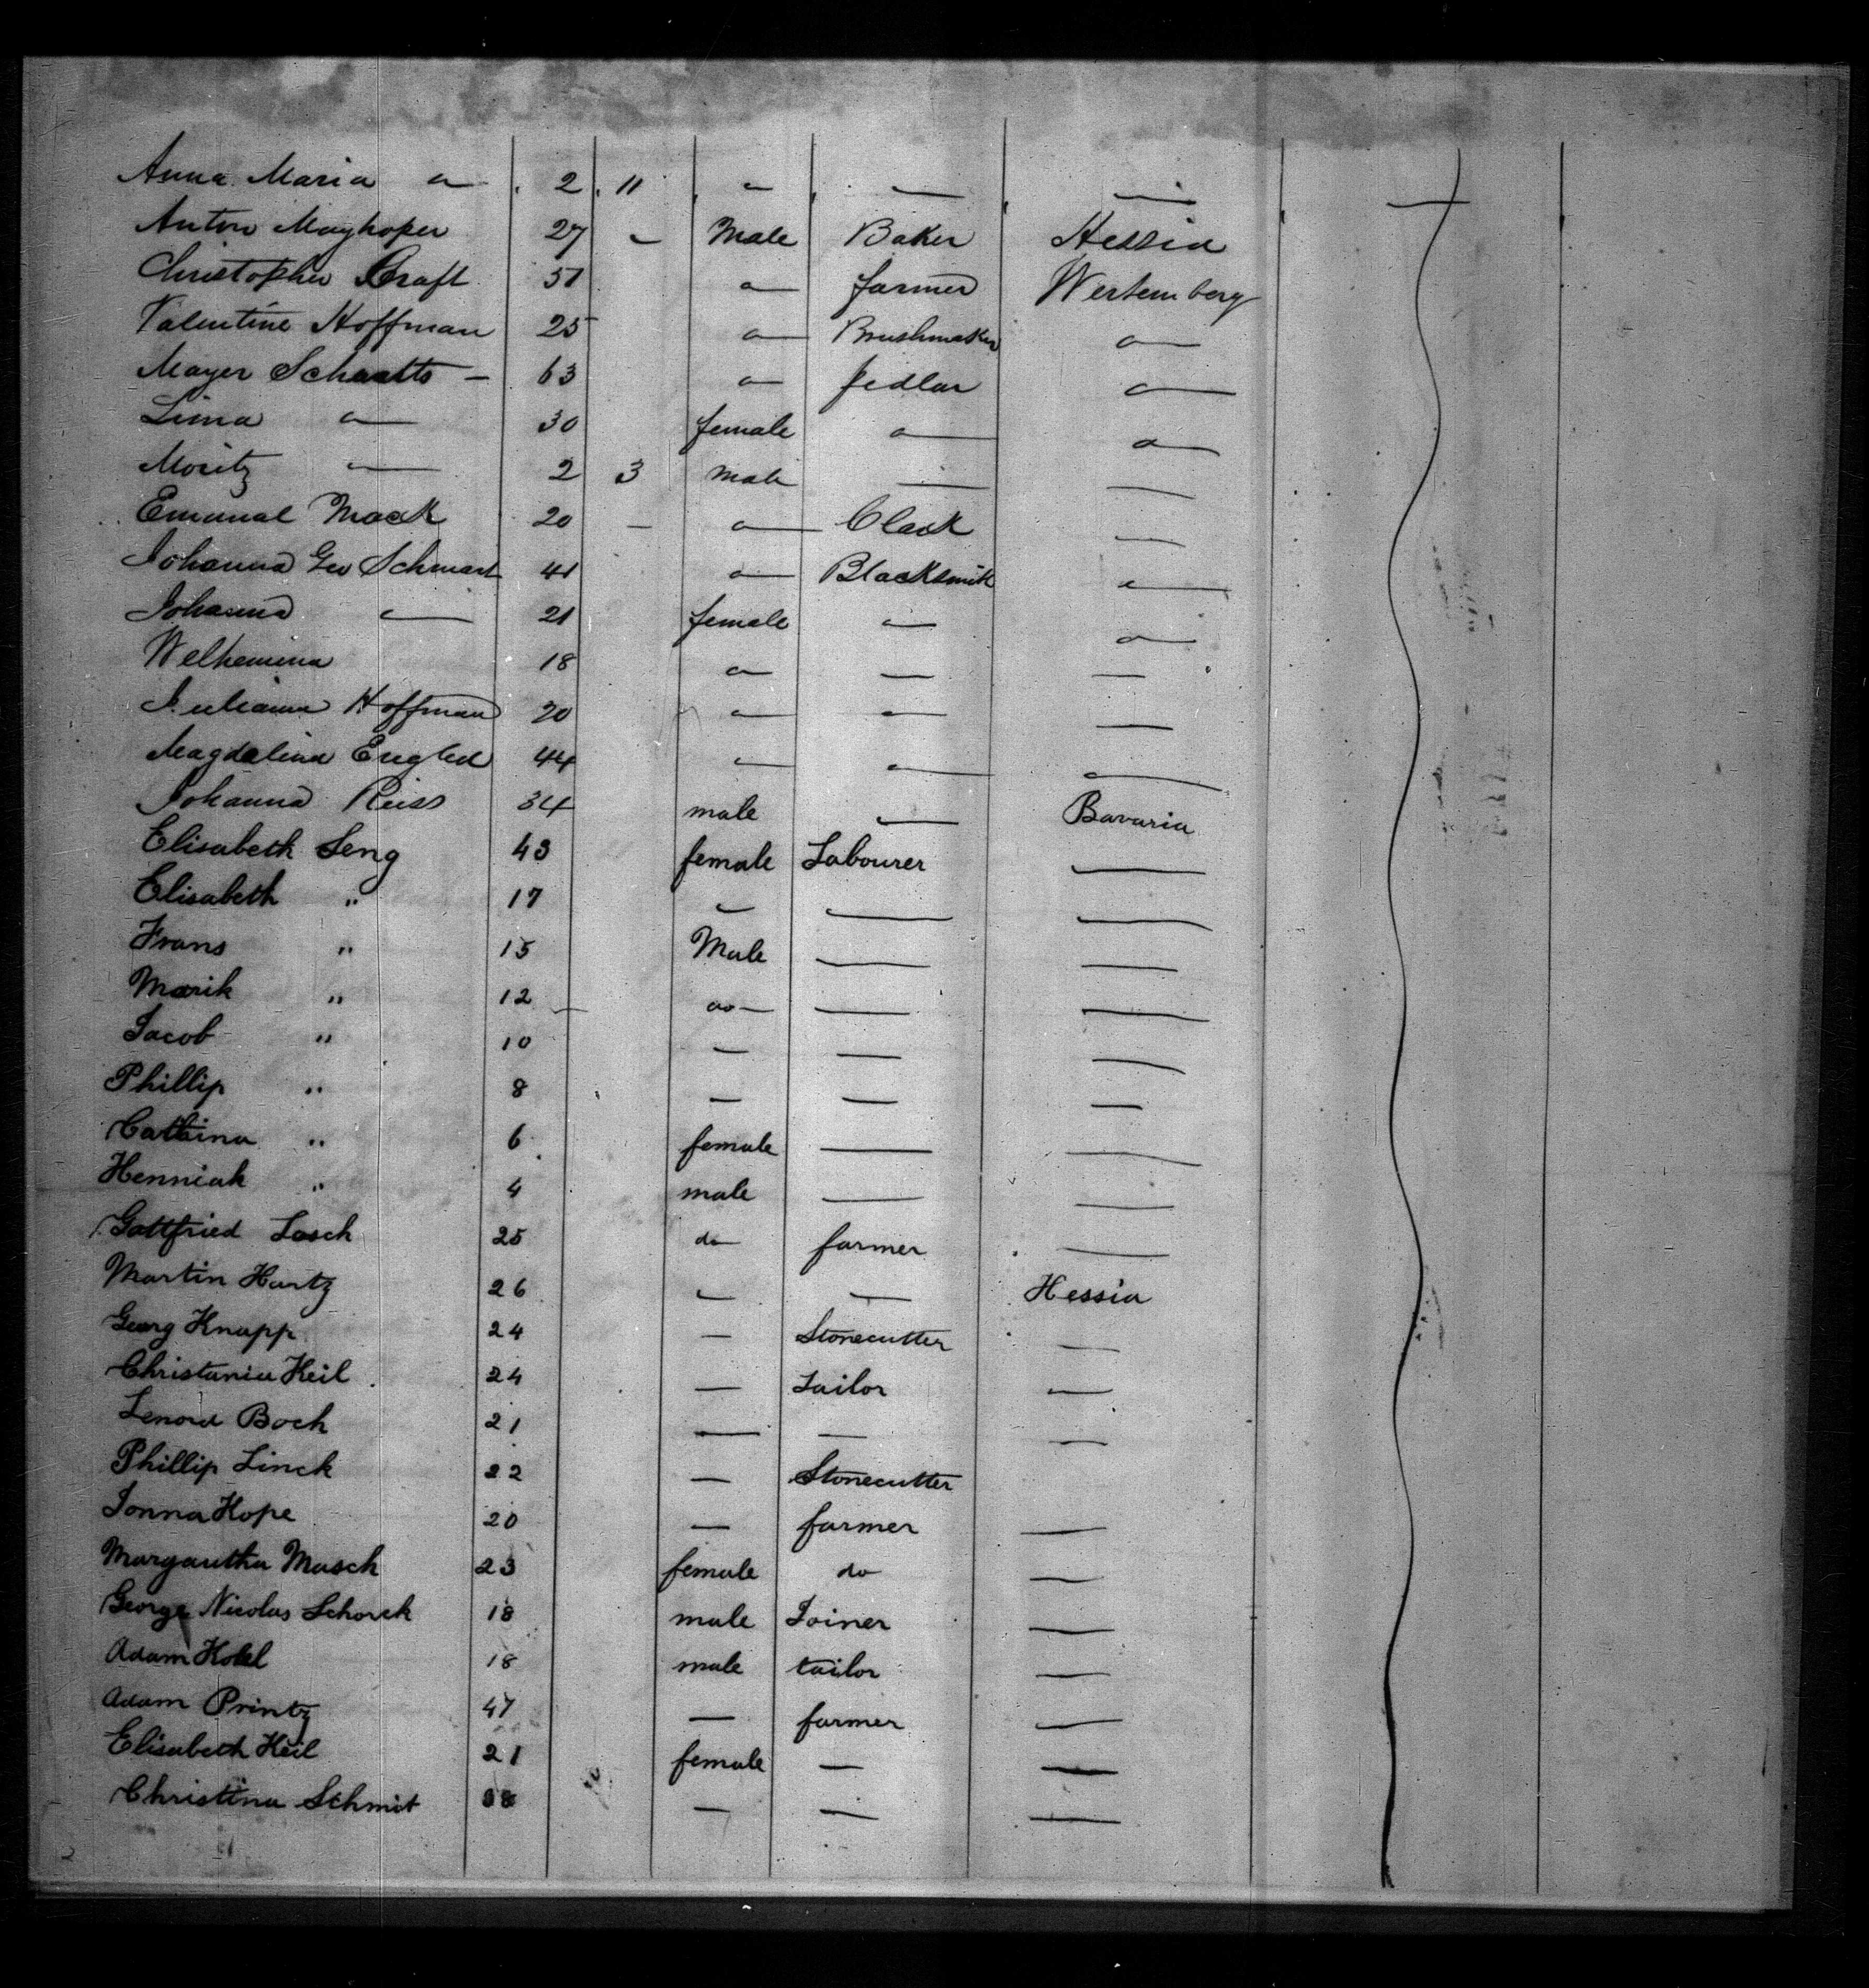 Anna Maria " 2 11 " — —
Anton Mayhoper 27 – Male Baker Hessia
Christopher Craft 51 " farmer Wertemberg
Valentine Hoffman 25 " Brushmaker "
Mayer Schaatts – 63 " pedlar "
Lima " 30 female " "
Moritz — 2 3 male — —
Emanal Mack 20 – " Clack —
Johanna Geo Schwart 41 " Blacksmith "
Johanna " 21 female " "
Welhemina 18 " — —
Juliana Hoffman 20 " " —
Magdalina Engled 44 " " "
Johanna Reiss 34 male — Bavaria
Elisabeth Seng 43 female Labourer —
Elisabeth " 17 — — —
Frans " 15 Male — —
Marik " 12 do — — —
Jacob " 10 — — —
Phillip " 8 — — —
Cathina " 6 female — —
Henniah " 4 male — —
Gottfried Losch 25 do farmer —
Martin Hartz 26 — — Hessia
Georg Knapp 24 — Stonecutter —
Christania Keil 24 — Tailor —
Lenord Boch 21 — — —
Phillip Linck 22 — Stonecutter
Jonna Hope 20 — farmer —
Margautha Masch 23 female do —
George Nicolas Schorck 18 male Joiner —
Adam Hobel 18 male tailor —
Adam Printz 47 — farmer —
Elisabeth Keil 21 female — —
Christina Schmit 18 — — —